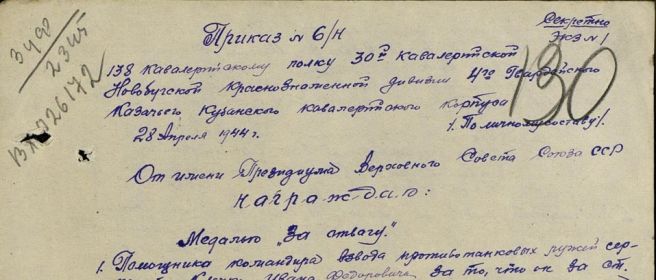 Секретно
экз №1
3490
2345
ВХ 726172
130
Приказ № 6/н
138 Кавалерийскому полку 30й Кавалерийской
Новобугской Краснознаменной дивизии 4го Гвардейского
Казачьего Кубанского кавалерийского корпуса
28 Апреля 1944 г. /. По личному составу/.
От имени Президиума Верховного Совета Союза ССР
награждаю:
Медалью „За отвагу."
1. Помощника командира взвода противотанковых ружей сер-
Ивана Федоровича за то, что он за от-